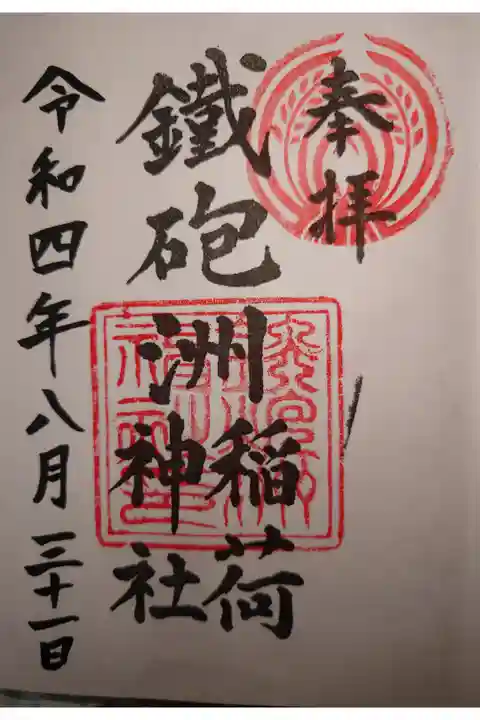 奉拝
鐵砲洲稲荷神社
令和四年八月三十一日